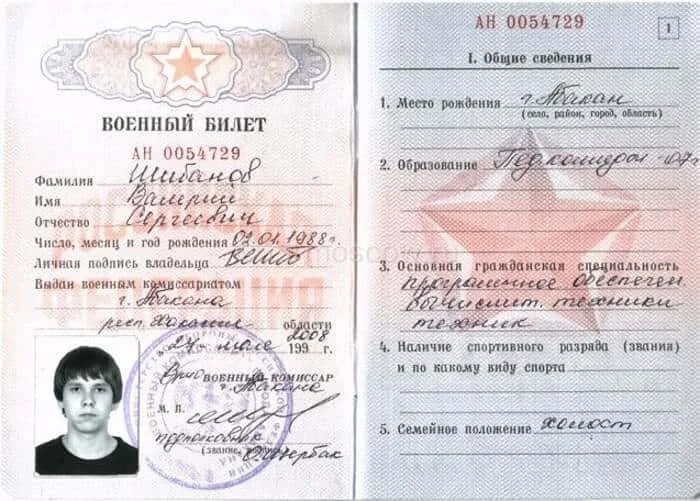 ВОЕННЫЙ БИЛЕТ
АН 0054729
Фамилия Шибанов
Имя Валерий
Отчество Сергеевич
Число, месяц и год рождения 02.01.1988г.
Личная подпись владельца
Выдан военным комиссариатом
г. Абакана
респ. Хакасия области
199 г. 2008
Врио ВОЕННЫЙ КОМИССАР
г. Абакана
М. П.
подполковник
(звание, подпись)
АН 0054729
1
I. Общие сведения
1. Место рождения г. Абакан
(село, район, город, область)
2. Образование Пед. колледж - 07г
3. Основная гражданская специальность
программное обеспечен
вычислит. техники
техник
4. Наличие спортивного разряда (звания)
и по какому виду спорта
5. Семейное положение холост